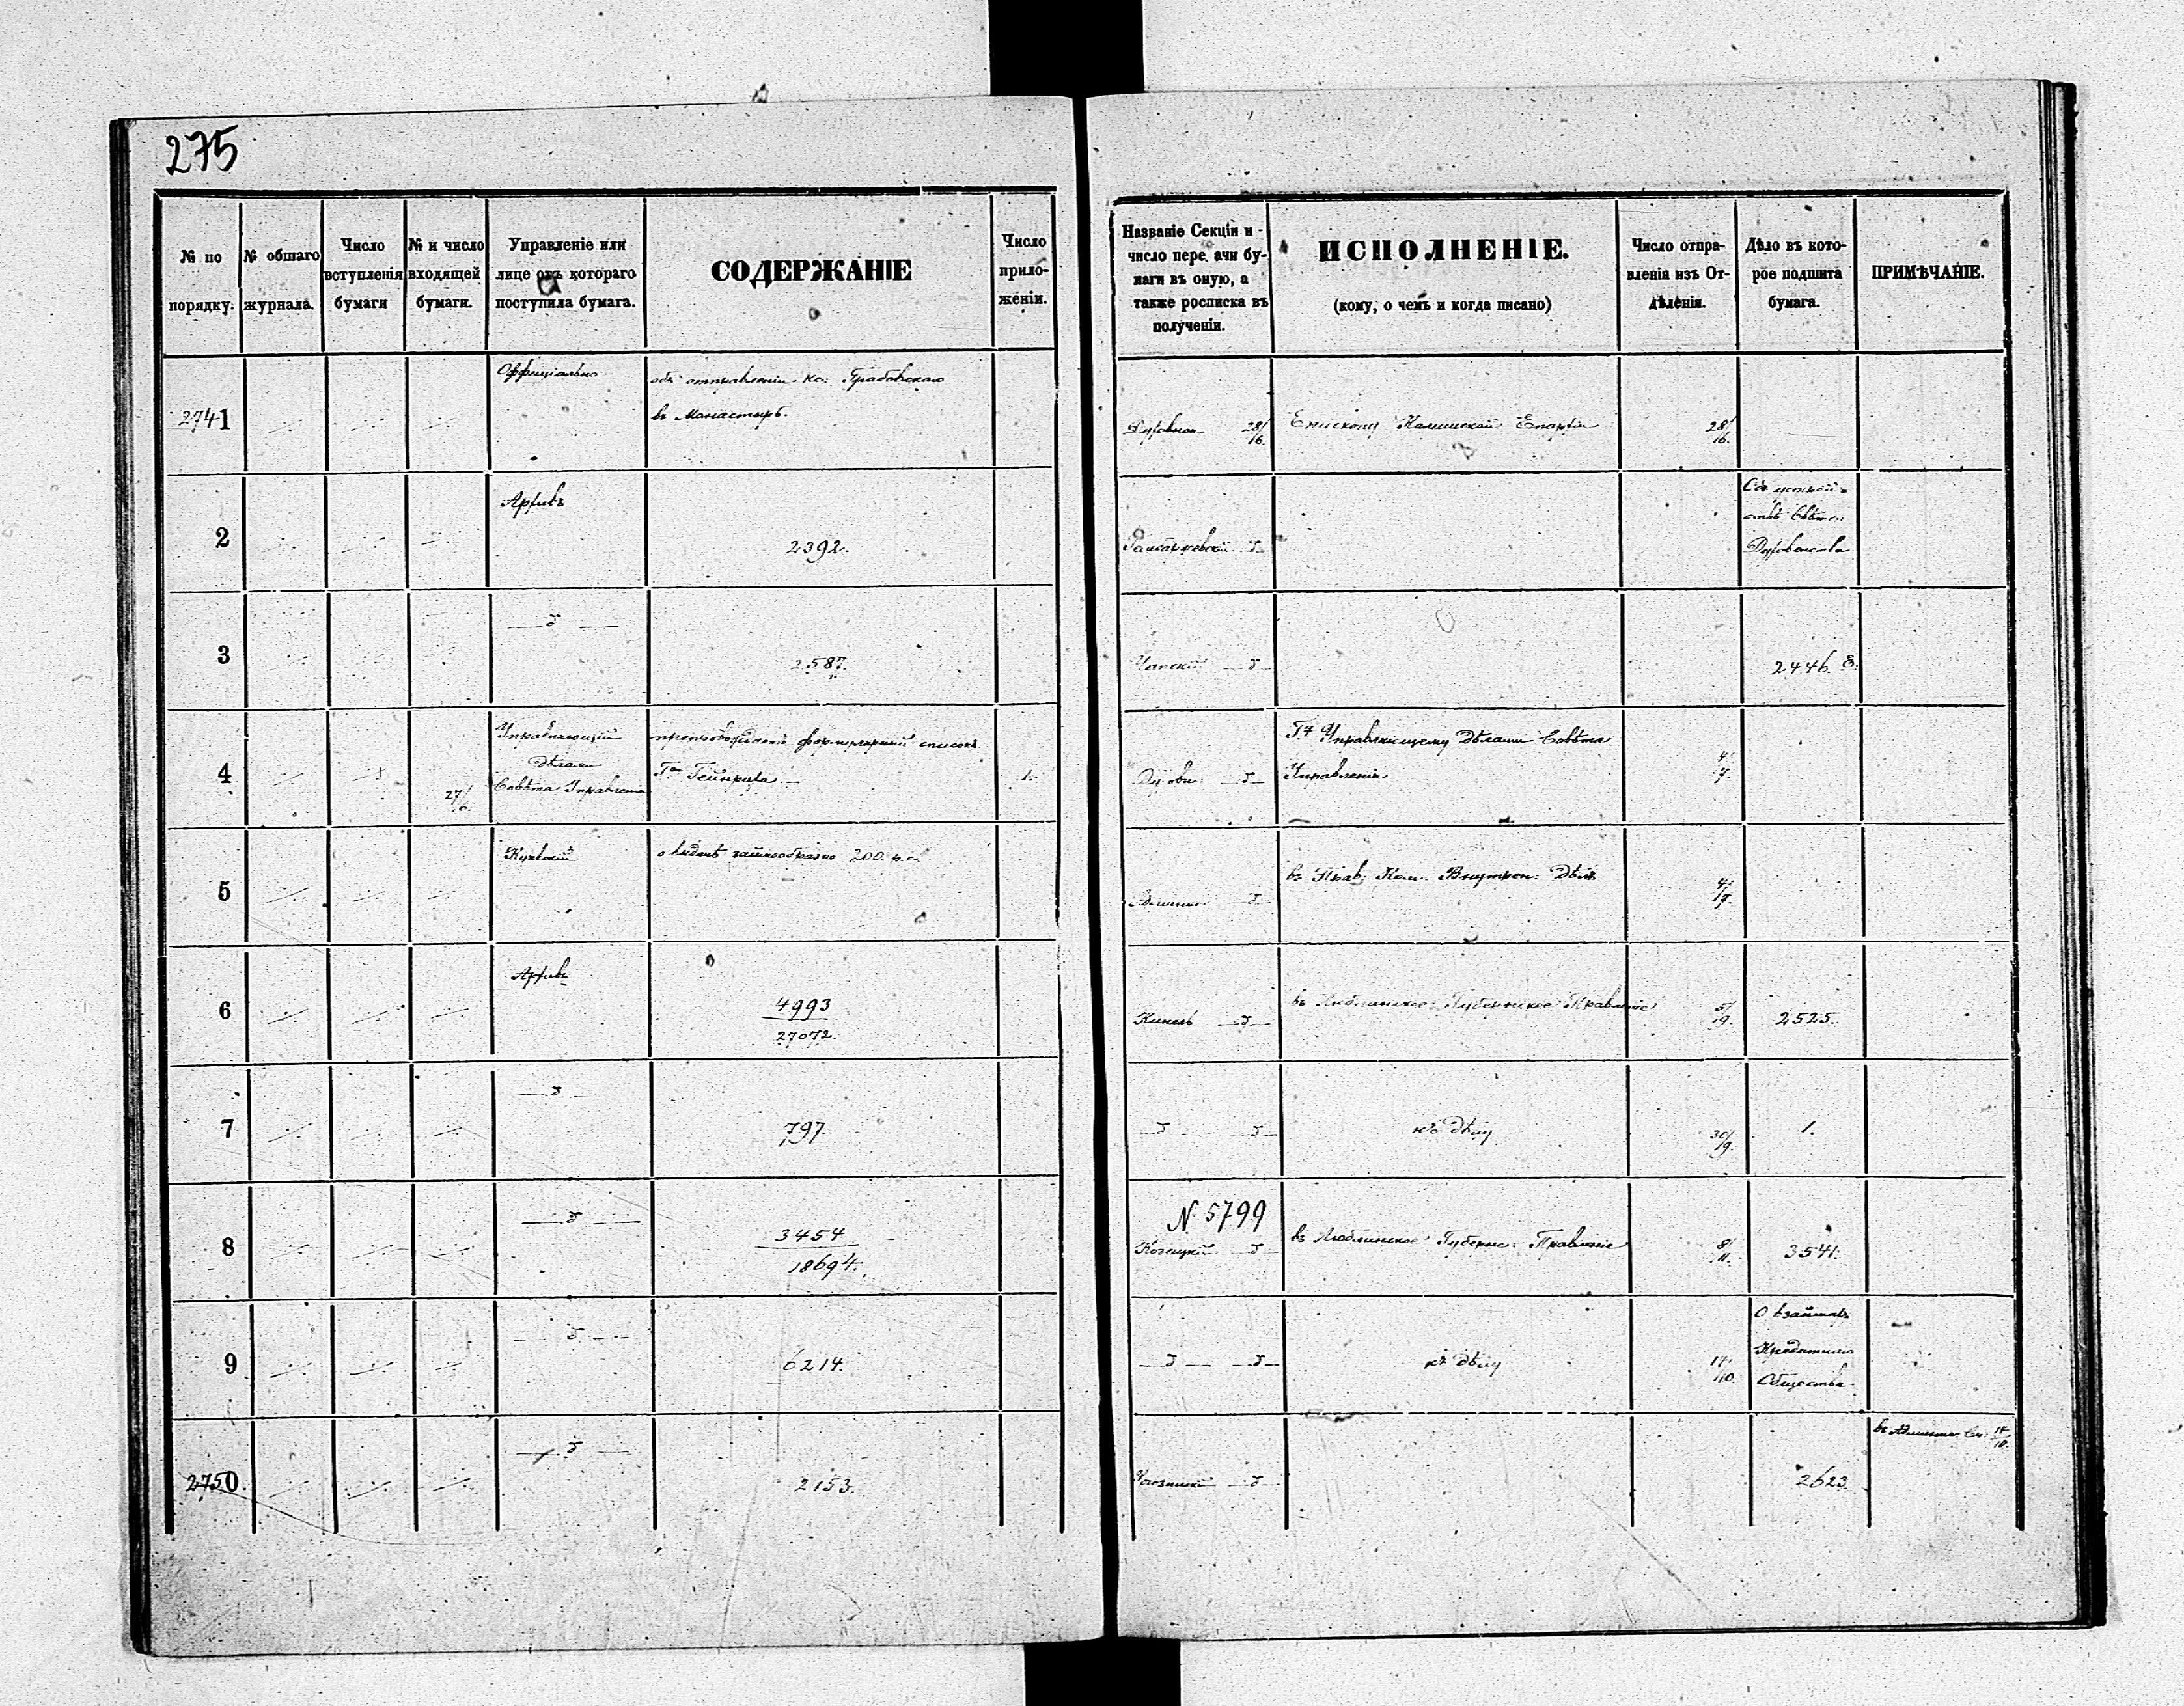 275
№ по
порядку.
№ общаго
журнала.
Число
вступленія
бумаги
№ и число
входящей
бумаги.
Управленіе или
лице отъ котораго
поступила бумага.
СОДЕРЖАНІЕ
Число
прило-
женіи.
Названіе Секціи и
число пере.ачи бу-
маги въ оную, а
также росписка въ
полученіи.
ИСПОЛНЕНІЕ.
(кому, о чемъ и когда писано)
Число отпра-
вленія изъ От-
дѣленія.
Дѣло въ кото-
рое подшита
бумага.
ПРИМѢЧАНІЕ.
2741
Оффиціально
объ отправленіи кс: Грабовскаго
въ Монастырь.
Духовная 28/6.
Епископу Калишской Епархіи
28/6.
2
Архивъ
2392.
Духовенства
3
2587.
2446.
4
27/6.
Управляющій
Дѣлами
Совѣта Управленія
препровождаетъ формулярный списокъ
Гна Гейнриха.
1.
Управляющему Дѣлами Совѣта
Управленія
4/7.
5
о выдачѣ заимообразно 200 р. с.
въ Прав: Ком: Внутрен: Дѣлъ
4/7.
6
Архивъ
4993
27072.
въ Люблинское Губернское Правленіе
5/9.
2525.
7
797.
къ дѣлу
30/9.
1.
8
3454
18694.
N. 5799
въ Люблинское Губернс: Правленіе
8/11.
3541.
9
6214.
къ дѣлу
14/10.
О займахъ
Кредитнаго
Общества
2750.
2153.
2623.